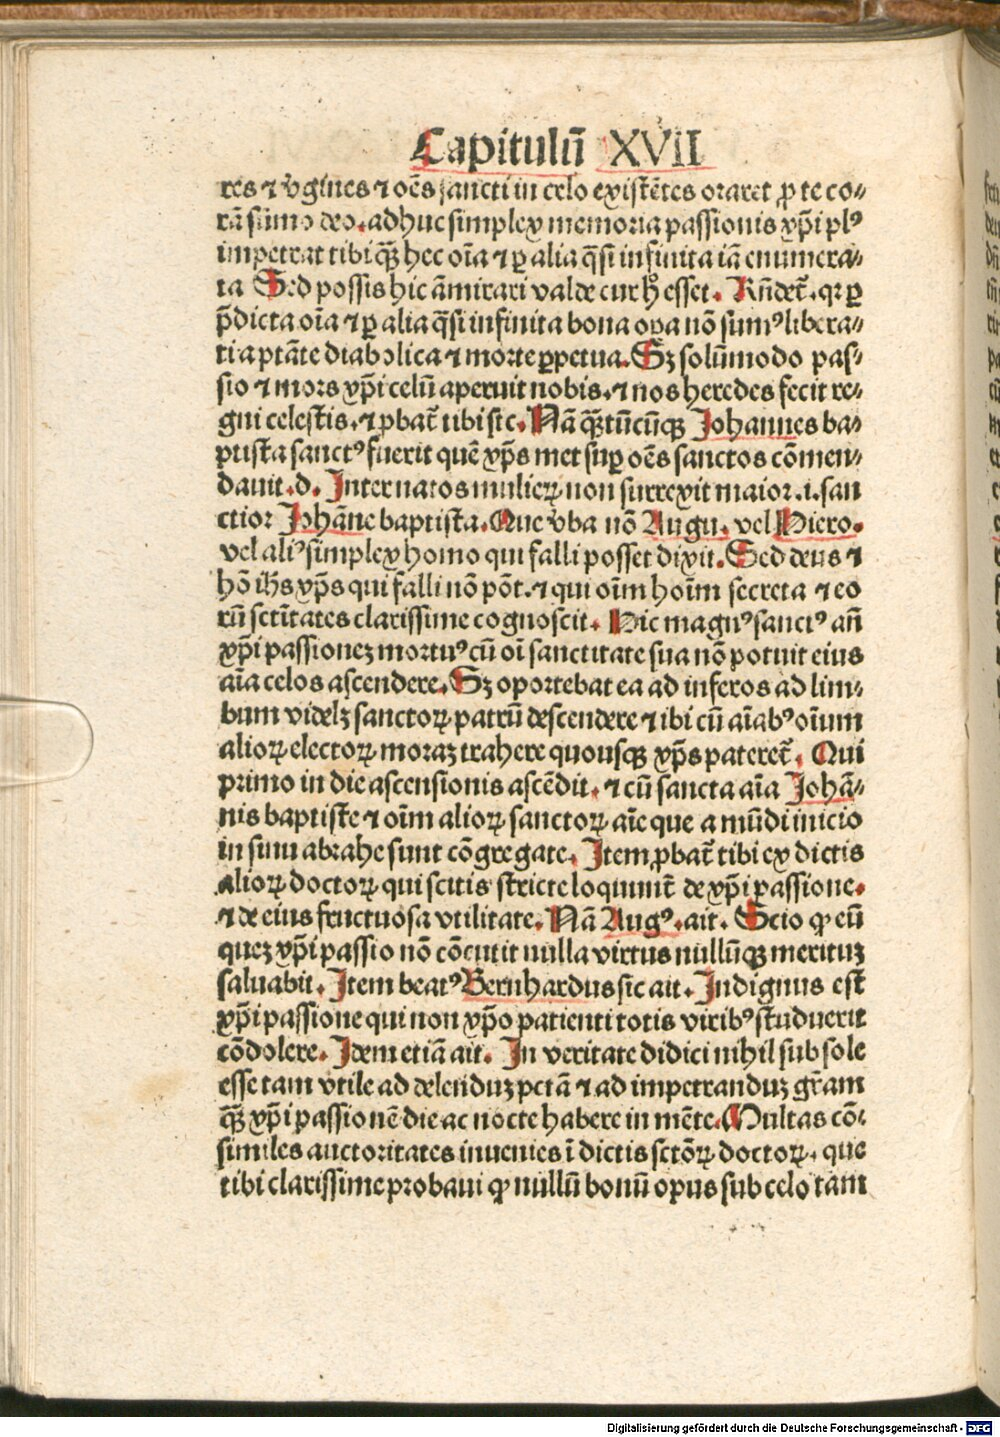 Capitulū XVII
res ⁊ v̄gīnes ⁊ oēs sancti in celo existētes orarēt ꝓ te co⸗
rā sūmo deo. adhuc simplex memoria passionis xp̄i plꝰ
impetrat tibi q̄ꝫ hec oīa ⁊ ꝑ alia q̄si infinita iā enumera⸗
ta Sed possis hic āmirari valde cur h̄ esset. Rn̄det̄. qꝛ ꝑ
p̄dicta oīa ⁊ ꝑ alia q̄si infinita bona oꝑa nō sumꝰ libera⸗
ti a ptāte diabolica ⁊ morte ꝑpetua. Sꝫ solūmodo pas⸗
sio ⁊ mors xp̄i celū aperuit nobis. ⁊ nos heredes fecit re⸗
gni celestis. ⁊ ꝓbat̄ tibi sic. Nā q̄ꝫtūcūqꝫ Johannes ba⸗
ptista sanctꝰ fuerit quē xp̄s met suꝑ oēs sanctos cōmen⸗
dauit. d. Inter natos mulieꝝ non surrexit maior .i. san
ctior Johāne baptista. Que v̄ba nō Augu. vel Hiero.
vel aliꝰ simplex homo qui falli posset dixit. Sed deus ⁊
hō ih̄s xp̄s qui falli nō pōt. ⁊ qui oīm hoīm secreta ⁊ eo
rū sctītates clarissime cognoscit. Hic magnꝰ sanctꝰ an̄
xp̄i passionez mortuꝰ cū oī sanctitate sua nō potuit eius
aīa celos ascendere. Sꝫ oportebat ea ad inferos ad lim⸗
bum videlꝫ sanctoꝝ patrū descendere ⁊ ibi cū aīabꝰ oīum
alioꝝ electoꝝ moraz trahere quousqꝫ xp̄s pateret̄. Qui
primo in die ascensionis ascēdit. ⁊ cū sancta aīa Johā⸗
nis baptiste ⁊ oīm alioꝝ sanctoꝝ aīe que a mūdi inicio
in sinu abrahe sunt cōgregate. Item ꝓbat̄ tibi ex dictis
alioꝝ doctoꝝ qui scitis stricte loquunt̄ de xp̄i passione.
⁊ de eius fructuosa vtilitate. Nā Augꝰ. ait. Scio ꝙ eū
quez xp̄i passio nō cōcutit nulla virtus nullūqꝫ merituz
saluabit. Item beatꝰ Bernhardus sic ait. Indignus est
xp̄i passione qui non xp̄o patienti totis viribꝰ studuerit
cōdolere. Idem etiā ait. In veritate didici nihil sub sole
esse tam vtile ad delenduz pctā ⁊ ad impetranduz gr̄am
q̄ꝫ xp̄i passionē die ac nocte habere in mēte. Multas cō⸗
similes auctoritates inuenies ī dictis sctōꝝ doctoꝝ. que
tibi clarissime probaui ꝙ nullū bonū opus sub celo tam
Digitalisierung gefördert durch die Deutsche Forschungsgemeinschaft - DFG